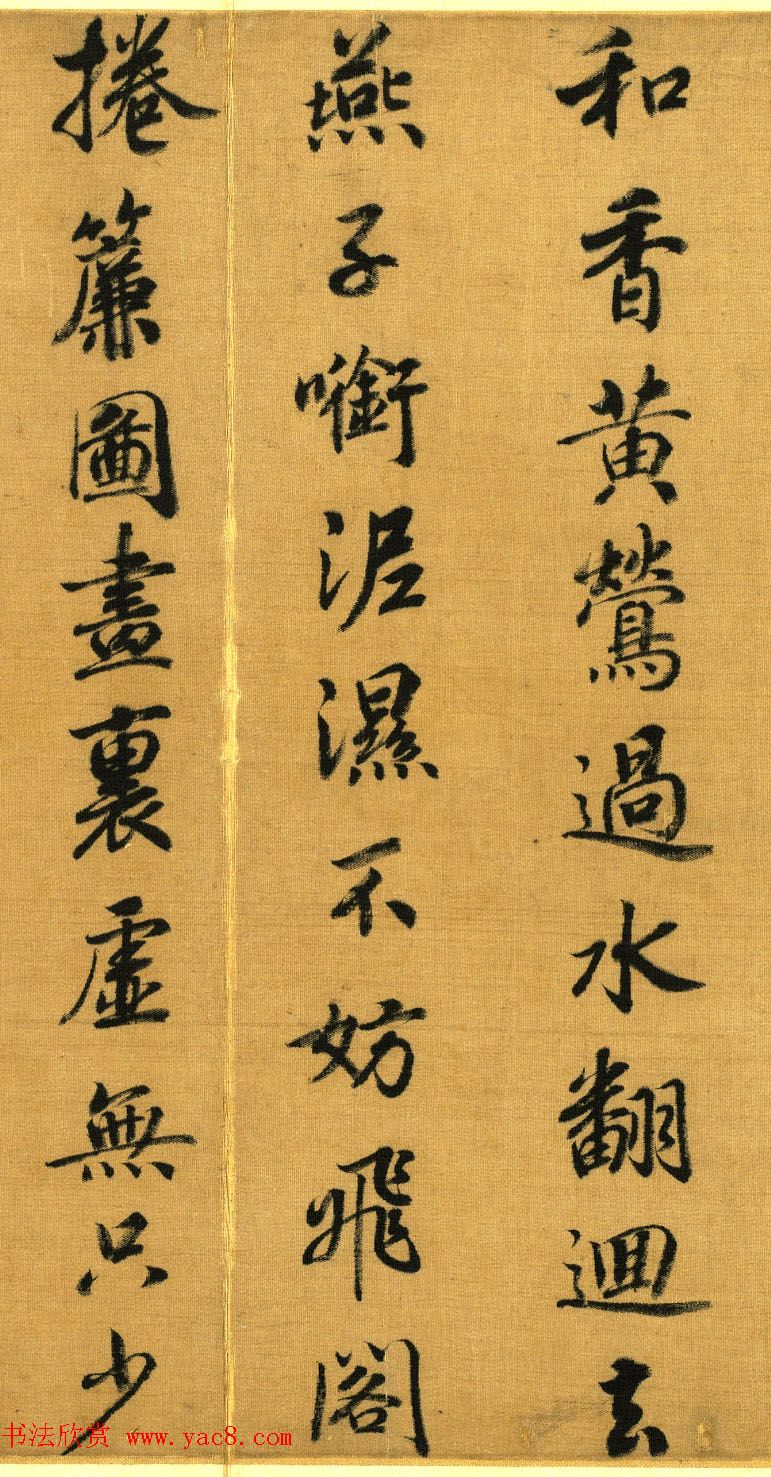 和香黄鶯過水翻迴去
燕子啣泥濕不妨飛閣
捲簾圖畫裏虛無只少
书法欣赏 www.yac8.com